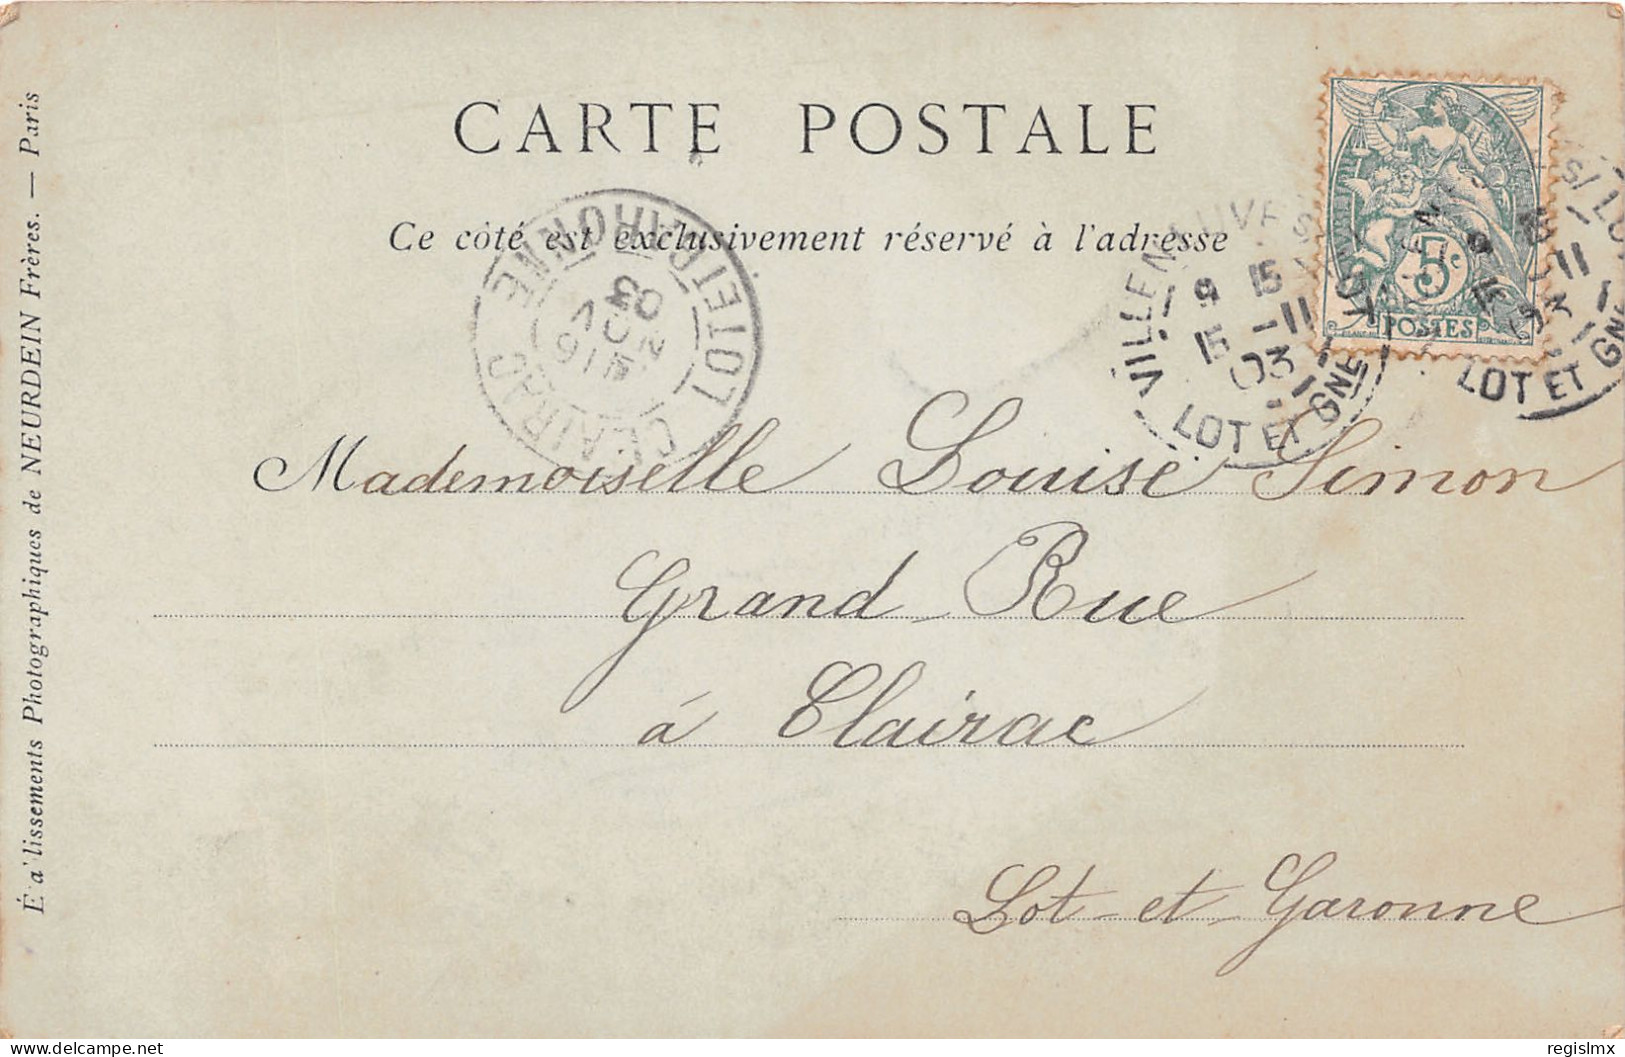 CARTE POSTALE
Ce côté est exclusivement réservé à l'adresse
É a' lissements Photographiques de NEURDEIN Frères. — Paris
CLAIRAC
LOT ET GARONNE
16
NOV
03
VILLENEUVE S/ LOT
9 15
15 -11
03
LOT ET GNE
S/ LOT
11
03
LOT ET GNE
5c
POSTES
Mademoiselle Louise Simon
Grand Rue
à Clairac
Lot-et-Garonne
Delcampe.net
regislmx